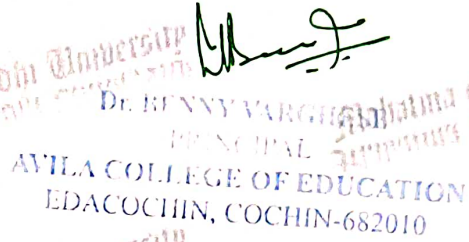 University
Dr. BENNY VARGH
PRINCIPAL
AVILA COLLEGE OF EDUCATION
EDACOCHIN, COCHIN-682010